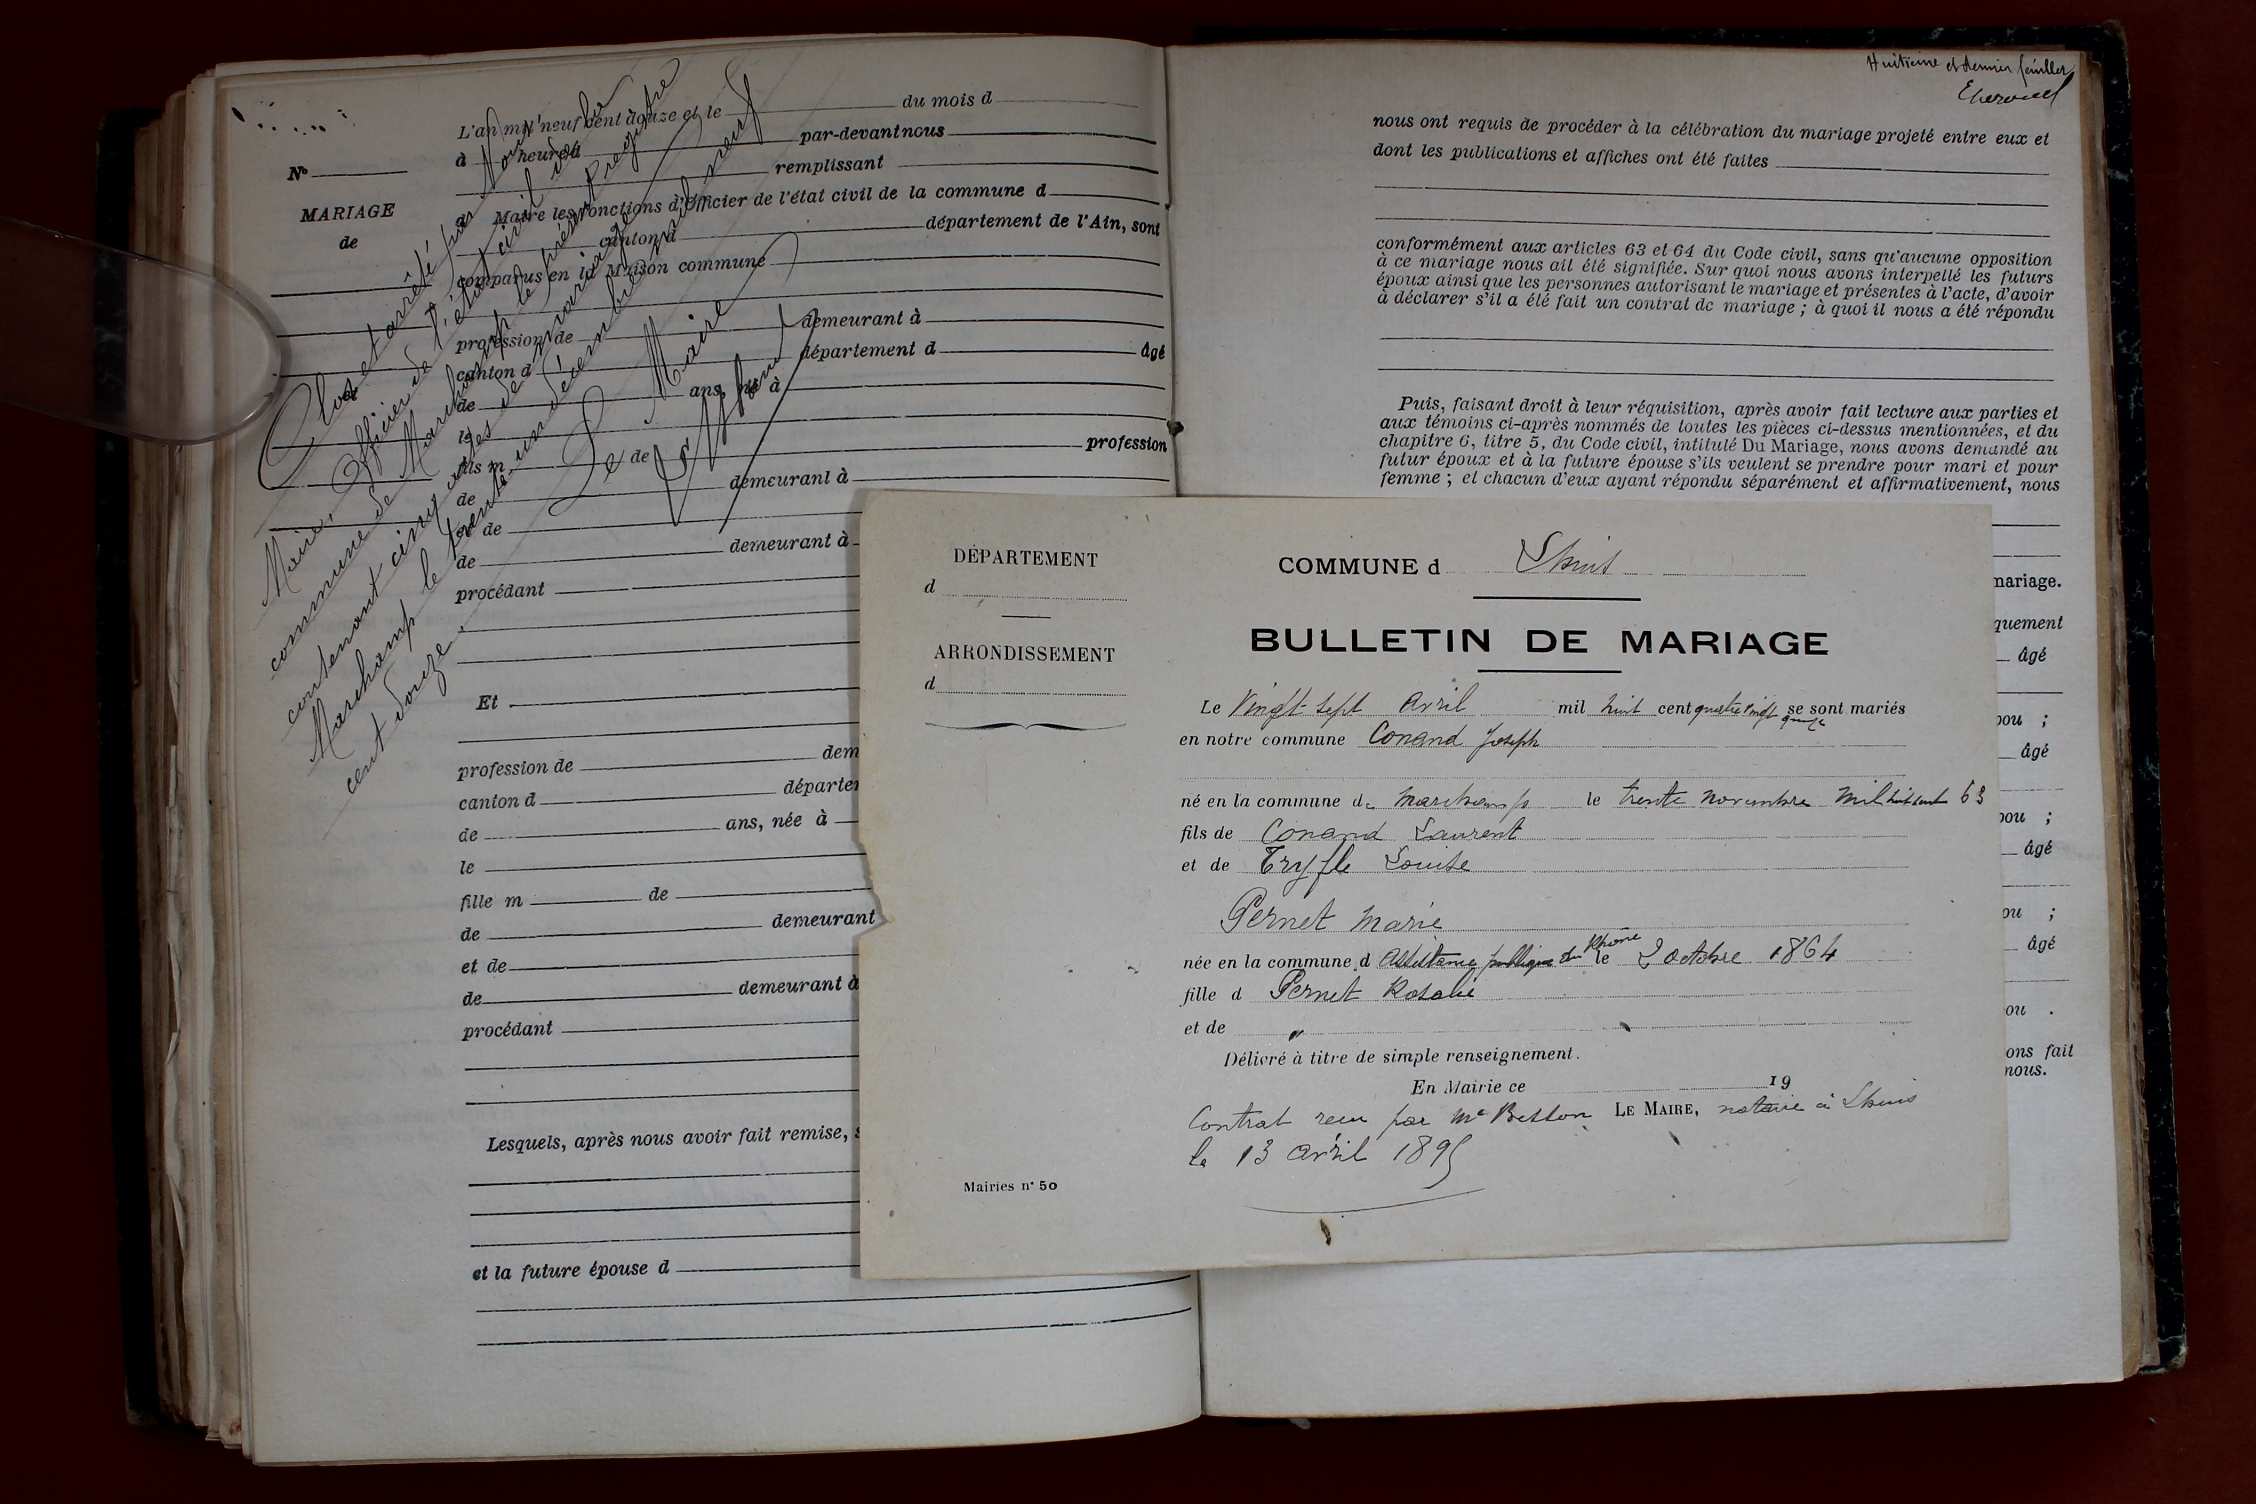 L'an mil neuf cent douze et le du mois d
à heures par-devant nous
remplissant
d Maire les fonctions d'Officier de l'état civil de la commune d
canton d département de l'Ain, sont
comparus en la Maison commune
profession de demeurant à
canton d département d âgé
de ans, né à
le
fils m de profession
de demeurant à
et de
de demeurant à
procédant
Et
profession de dem
canton d départe
de ans, née à
le
fille m de
de demeurant
et de
de demeurant à
procédant
Lesquels, après nous avoir fait remise, s
et la future épouse d
N°
MARIAGE
de
et
Clos et arrêté par Nous
Maire, Officier de l'état civil de la
commune de Marchamp le présent registre
contenant cinq actes de mariage
Marchamp le trente un décembre mil neuf
cent douze.
Le Maire
Huitième et dernier feuillet
nous ont requis de procéder à la célébration du mariage projeté entre eux et
dont les publications et affiches ont été faites
conformément aux articles 63 et 64 du Code civil, sans qu'aucune opposition
à ce mariage nous ait été signifiée. Sur quoi nous avons interpellé les futurs
époux ainsi que les personnes autorisant le mariage et présentes à l'acte, d'avoir
à déclarer s'il a été fait un contrat de mariage ; à quoi il nous a été répondu
Puis, faisant droit à leur réquisition, après avoir fait lecture aux parties et
aux témoins ci-après nommés de toutes les pièces ci-dessus mentionnées, et du
chapitre 6, titre 5, du Code civil, intitulé Du Mariage, nous avons demandé au
futur époux et à la future épouse s'ils veulent se prendre pour mari et pour
femme ; et chacun d'eux ayant répondu séparément et affirmativement, nous
mariage.
quement
âgé
ou ;
âgé
ou ;
âgé
ou ;
âgé
ou .
ons fait
nous.
DÉPARTEMENT
d
ARRONDISSEMENT
d
COMMUNE d Lhuis
BULLETIN DE MARIAGE
Le Vingt sept avril mil huit cent quatre vingt quinze se sont mariés
en notre commune Conand Joseph
né en la commune de Marchamp le trente novembre mil huit cent 63
fils de Conand Laurent
et de Tryfle Louise
Pernet Marie
née en la commune d Assistance publique du Rhône le 2 octobre 1864
fille d Pernet Rosalie
et de "
Délivré à titre de simple renseignement.
En Mairie ce 19
LE MAIRE,
Contrat reçu par Me Betton notaire à Lhuis
le 13 avril 1895
Mairies n° 50